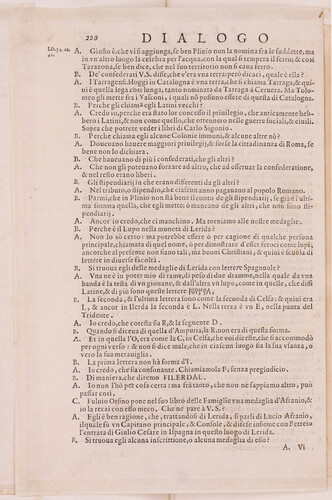 200 DIALOGO
Lib.34. ca.
41.
A. Giusto è, che vi s'aggiunga, se ben Plinio non la nomina fra le suddette, ma
in vn'altro luogo la celebra per l'acqua, con la qual si tempera il ferro; & così
Tarazona, se ben dice, che nel suo territorio non si caua ferro.
B. De' confederati V.S. disse, che v'era vna terra; però dicaci, quale è ella?
A. I Tarragensi. Hoggi in Catalogna è vna terra, che si chiama Tarraga, & qui-
ui è quella lega così lunga, tanto nominata da Tarraga à Ceruera. Ma Tolo-
meo gli mette fra i Vasconi, i quali nō possono essere di questa di Catalogna.
B. Perche gli chiamā egli Latini vecchi?
A. Credo io, perche era stato lor concesso il priuilegio, che anticamente heb-
bero i Latini, & non come quello, che ottennero nelle guerre sociali, & ciuili.
Sopra che potrete veder i libri di Carlo Sigonio.
B. Perche chiama egli alcune Colonie immuni, & alcune altre nò?
A. Doueano hauere maggiori priuilegij, & forse la cittadinanza di Roma, se
bene non lo dichiara.
B. Che haueuano di più i confederati, che gli altri?
A. Che non gli poteuano forzare ad altro, che ad osseruar la confederatione,
& nel resto erano liberi.
B. Gli stipendiarij in che erano differenti da gli altri?
A. Nel tributo, ò stipendio, che ciascun anno pagauano al popolo Romano.
B. Parmi, che in Plinio non stà bene il conto de gli stipendiarij, se già è l'ulti-
ma somma quella, che egli mette; ò mancano de gli altri, che non sono sti-
pendiarij.
A. Ancor io credo, che ci manchino. Ma torniamo alle nostre medaglie.
B. Perche è il Lupo nella moneta di Lerida?
A. Non lo sò certo: ma potrebbe essere ò per cagione di qualche persona
principale, chiamata di quel nome, ò per dimostrare d'esser feroci come lupi,
ancorche al presente non siano tali, ma buoni Christiani, & quiui è scuola di
lettere in diuerse facoltà.
B. Si troua egli delle medaglie di Lerida con lettere Spagnuole?
A. Vna ne è in poter mio di rame, di peso di due dramme, nella quale da vna
banda è la testa di vn giouane, & dall'altra vn lupo, come in quelle, che dissi
Latine, & di più sono quelle lettere
B. La seconda, & l'ultima lettera sono come la seconda di Celsa: & quiui era
L, & ancor in Ilerda la seconda è L. Nella terza è vn E, nella punta del
Tridente.
A. Io credo, che cotesta sia R, & la seguente D.
B. Quando si diceua di quella d'Ampurias, la R, non era di questa forma.
A. Et in quella l'O, era come la C, in Celsa, che voi diceste, che si accommodò
per ogni verso: & non si dice male, che in ciascun luogo sia la sua vsanza, ò
vero la sua merauiglia.
B. La prima lettera non hà forma d'I.
A. Io credo, che sia consonante. Chiamiamola F, senza pregiudicio.
B. Di maniera, che diremo FILERDAL.
A. Io non l'hò per cosa certa ma fra tanto, che non ne sappiamo altro, può
passar così.
C. Fuluio Orsino pone nel suo libro delle Famiglie vna medaglia d'Afranio, &
io la recai con esso meco. Che ne pare à V.S.?
A. Egli è ben ragione, che, trattandosi di Lerida, si parli di Lucio Afranio,
il quale fù vn Capitano principale, & Console, & difese insieme con Petreio
l'entrata di Giulio Cesare in Ispagna in questo luogo di Lerida.
B. Si troua egli alcuna inscrittione, o alcuna medaglia di esso?
A. Vi